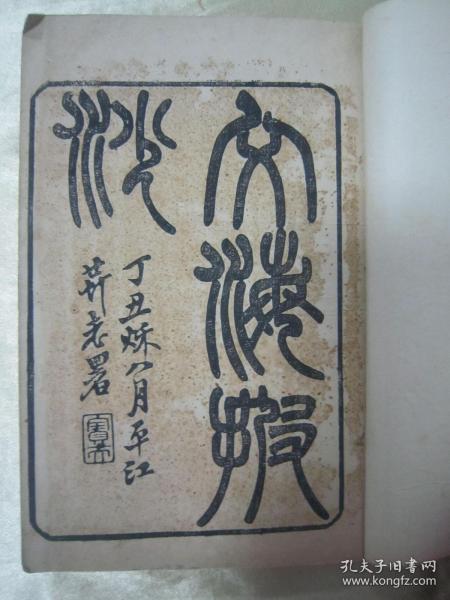 文海披
沙
丁丑秌八月平江
老署
孔夫子旧书网
www.kongfz.com